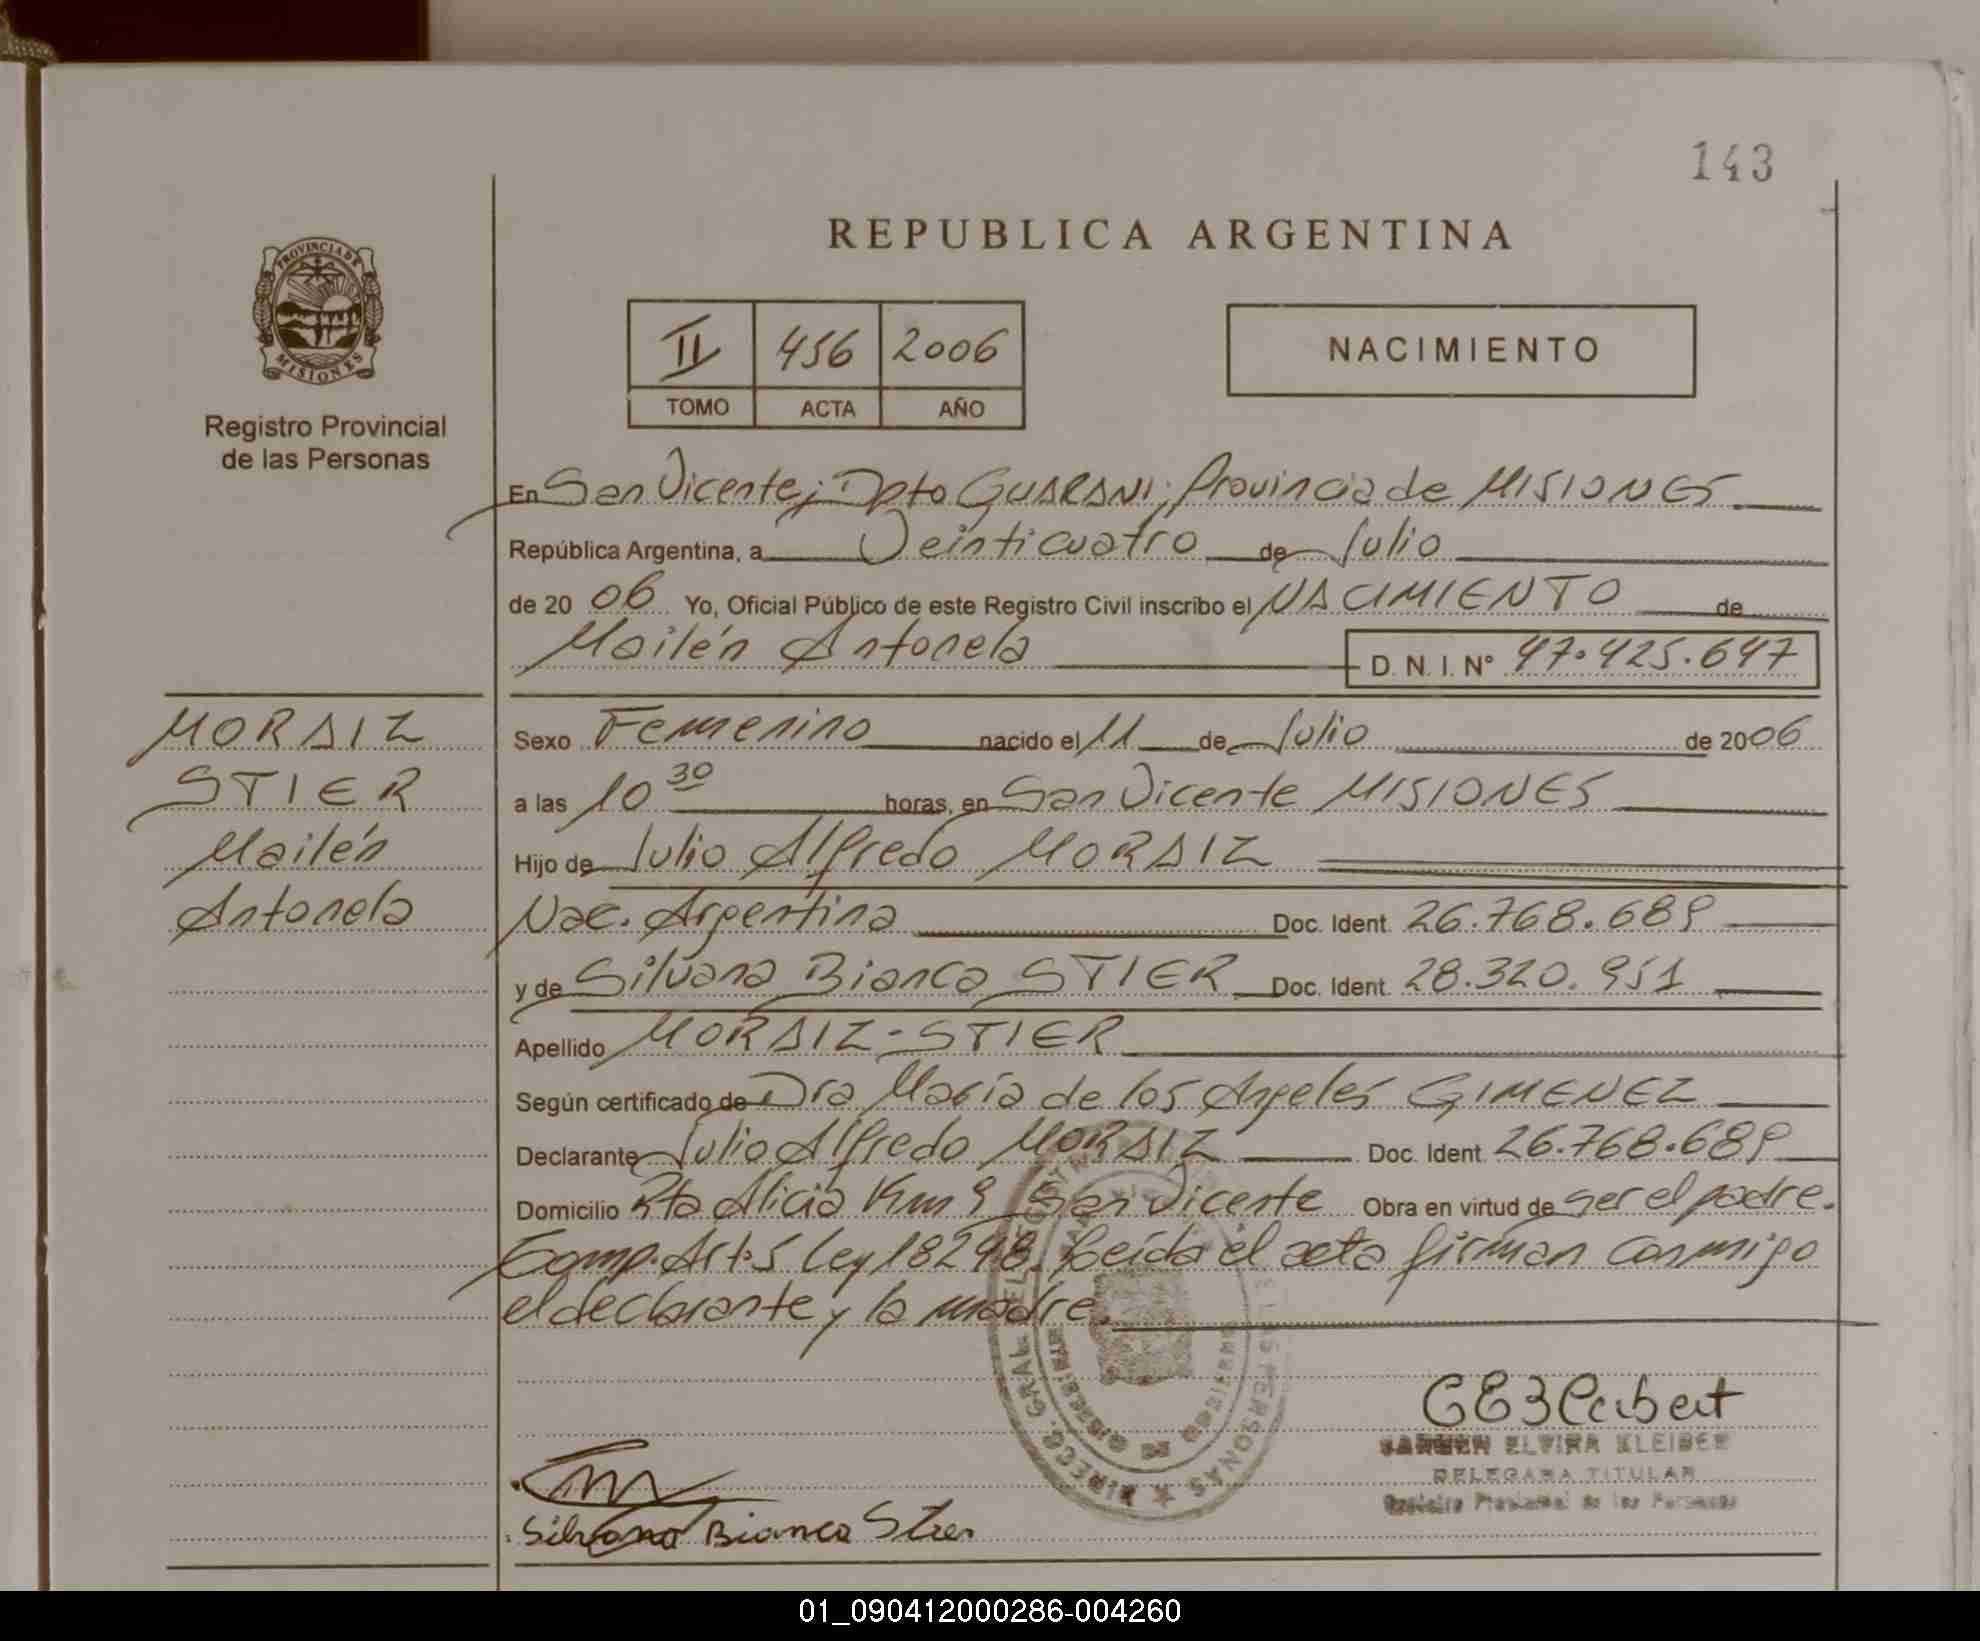 143
REPUBLICA ARGENTINA
PROVINCIA DE MISIONES
Registro Provincial
de las Personas
II 456 2006
TOMO ACTA AÑO
NACIMIENTO
En San Vicente; Dpto GUARANI; Provincia de MISIONES
República Argentina, a Veinticuatro de Julio
de 2006 Yo, Oficial Público de este Registro Civil inscribo el NACIMIENTO de
Mailén Antonela D.N.I. Nº 47.425.647
MORAIZ
STIER
Mailén
Antonela
Sexo Femenino nacido el 11 de Julio de 2006
a las 10 30 horas, en San Vicente MISIONES
Hijo de Julio Alfredo MORAIZ
Nac. Argentina Doc. Ident. 26.768.689
y de Silvana Bianca STIER Doc. Ident. 28.320.951
Apellido MORAIZ-STIER
Según certificado de Dra María de los Angeles GIMENEZ
Declarante Julio Alfredo MORAIZ Doc. Ident. 26.768.689
Domicilio Rta Alicia Km 9 San Vicente Obra en virtud de ser el padre.
Comp. Art. 5 Ley 18248. Leída el acta firman conmigo
el declarante y la madre.
Silvana Bianca Stier
CARMEN ELVIRA KLEIBER
DELEGADA TITULAR
Registro Provincial de las Personas
01_090412000286-004260